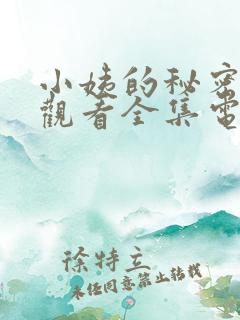 小姨的秘密
觀看全集電
徐特立
未经同意禁止转载